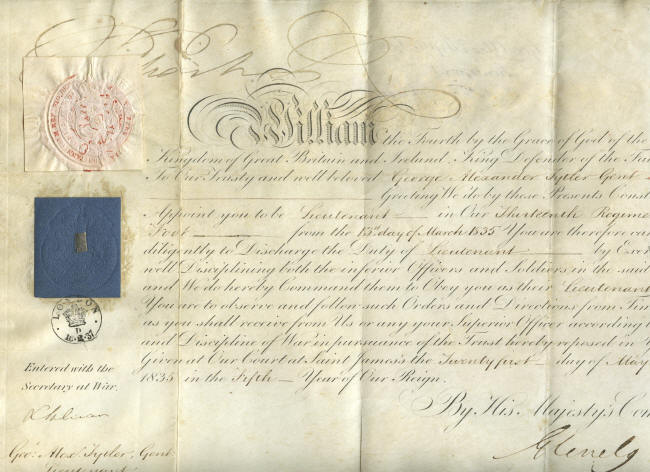 William the Fourth by the Grace of God of the
Kingdom of Great Britain and Ireland, King Defender of the Fai
To Our Trusty and well beloved George Alexander Tytler Gent
Greeting We do by these Presents Const
Appoint you to be Lieutenant in Our Thirteenth Regime
Foot from the 13th day of March 1835 You are therefore car
diligently to Discharge the Duty of Lieutenant by Exer
well Disciplining both the inferior Officers and Soldiers in the said
and We do hereby Command them to Obey you as their Lieutenant
You are to observe and follow such Orders and Directions from Tim
as you shall receive from Us or any your Superior Officer according t
and Discipline of War in pursuance of the Trust hereby reposed in Y
Given at Our Court at Saint James's the Twenty first day of May
1835 in the Fifth Year of Our Reign.
By His Majesty's Com
Glenelg
LONDON
D
Entered with the
Secretary at War.
Geo: Alexr Tytler, Gent
Lieutenant